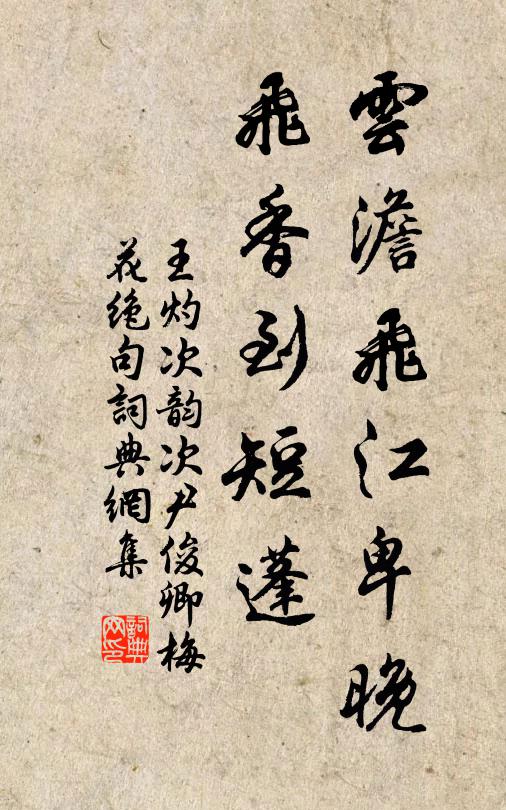 雲澹飛江卑晚
飛香到短蓬
王灼次韵次尹俊卿梅
花绝句詞典網集
詞典
网印